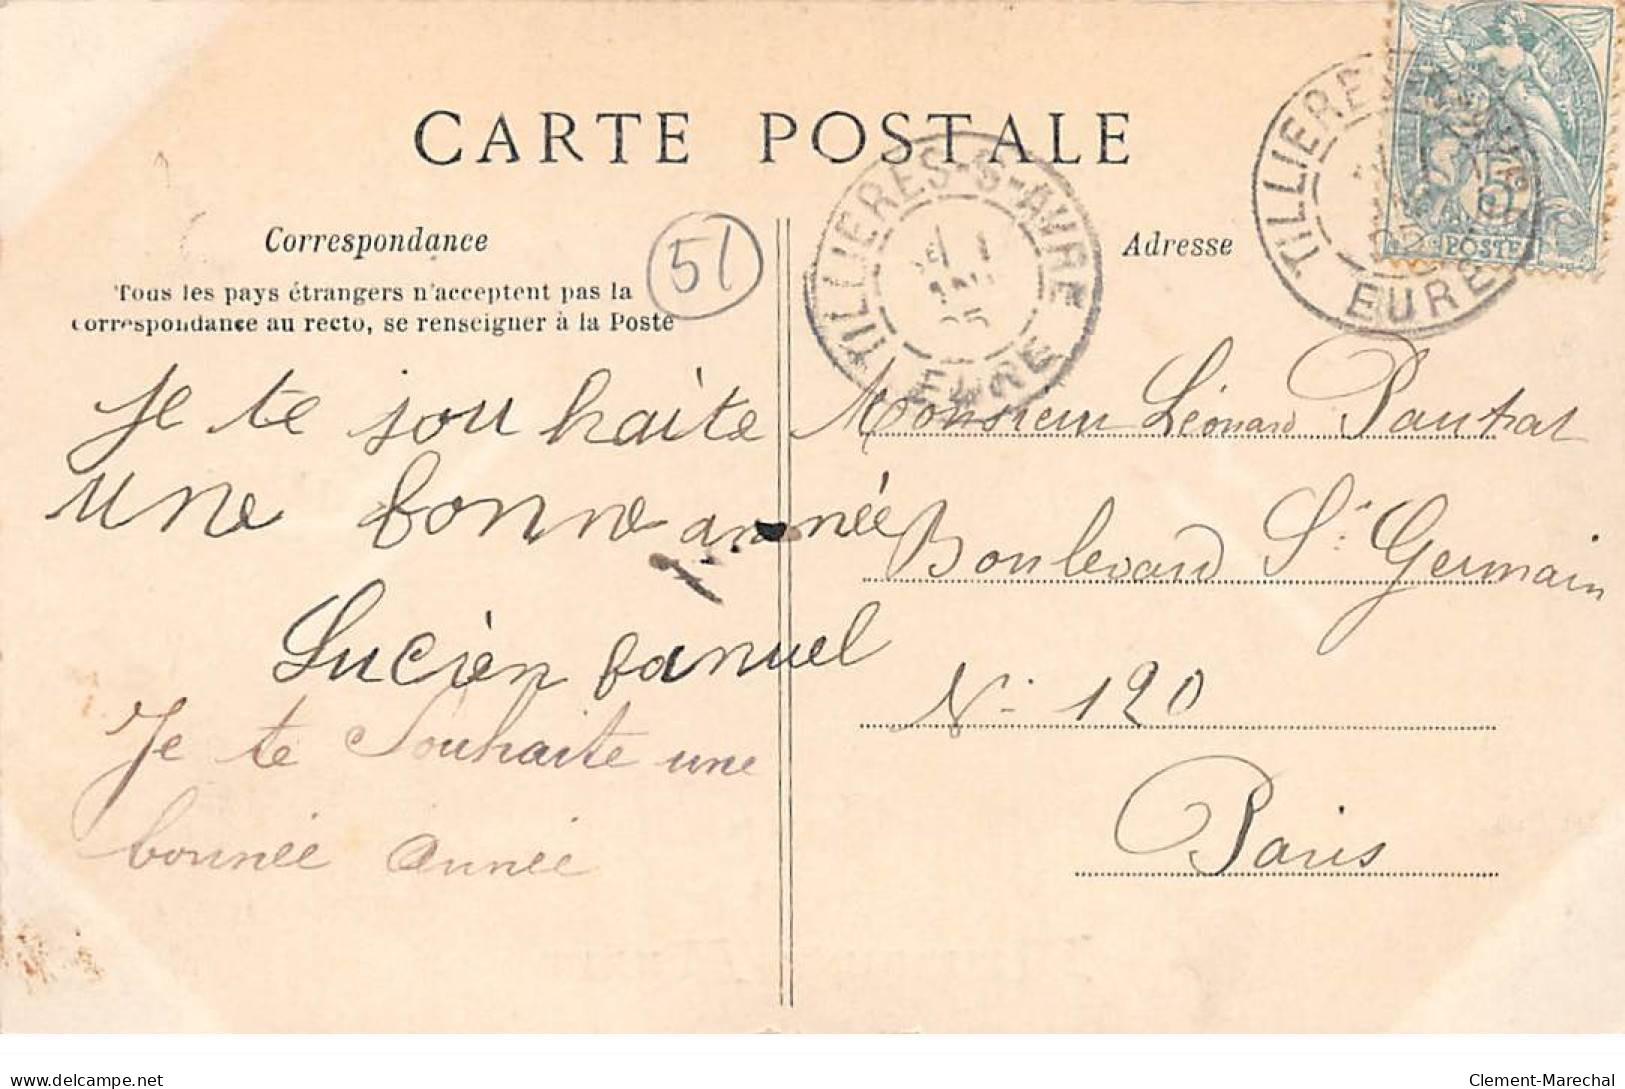 CARTE POSTALE
Correspondance
Tous les pays étrangers n'acceptent pas la
correspondance au recto, se renseigner à la Poste
51
Je te souhaite
une bonne année
Lucien
Je te souhaite une
bonneé année
TILLIERES-S-AVRE
EURE
Adresse
TILLIERES
EURE
5
POSTES
Monsieur Léonard Pautrat
Boulevard St Germain
N: 120
Paris
delcampe.net
Clement-Marechal